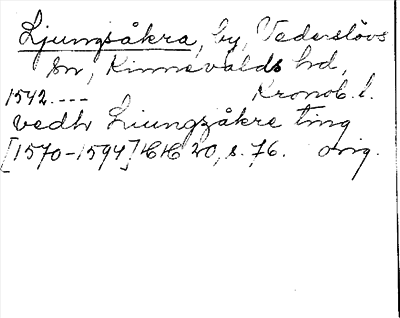 Ljungsåkra, by, Vederslövs
sn, Kinnevalds hd,
1542.--- Kronob. l.
vedh Liungzåkre ting
[1570-1594] HH 20, s. 76. orig.